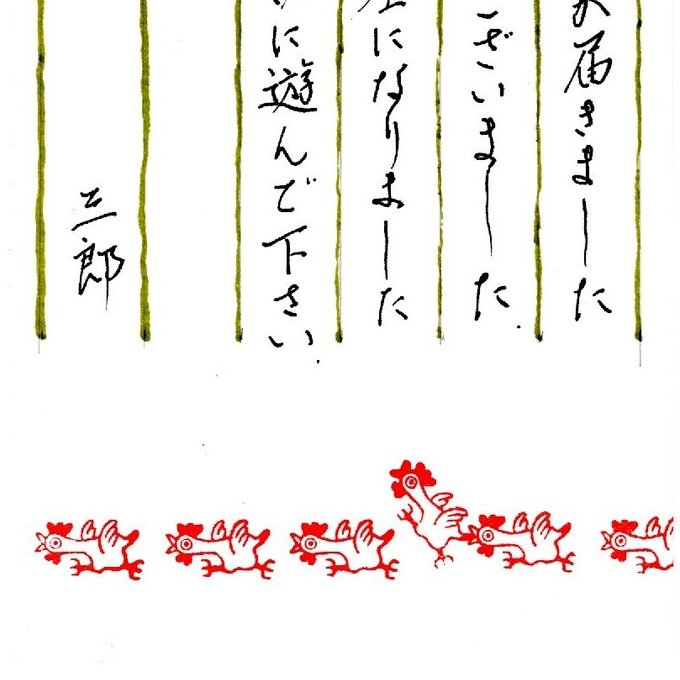 届きました
ざいました.
になりました
に遊んで下さい.
三郎